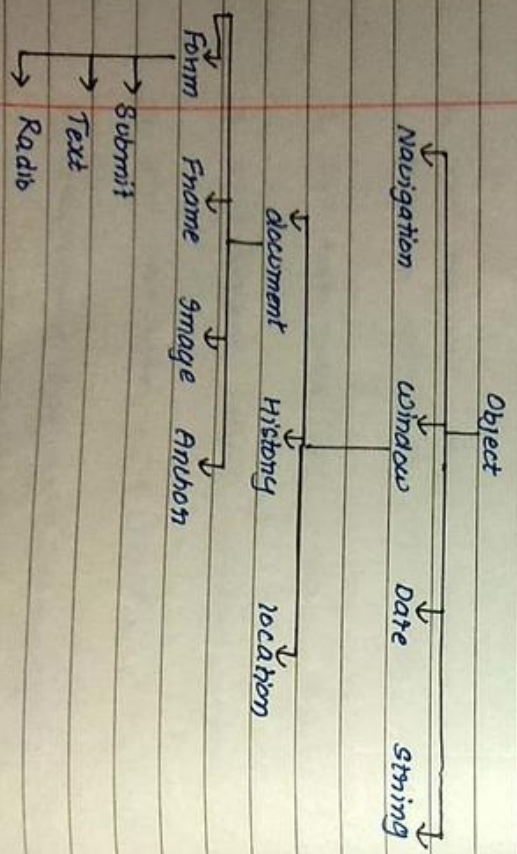 Object
Navigation Window Date String
document History location
Form Fname Image Anchor
Submit
Text
Radio